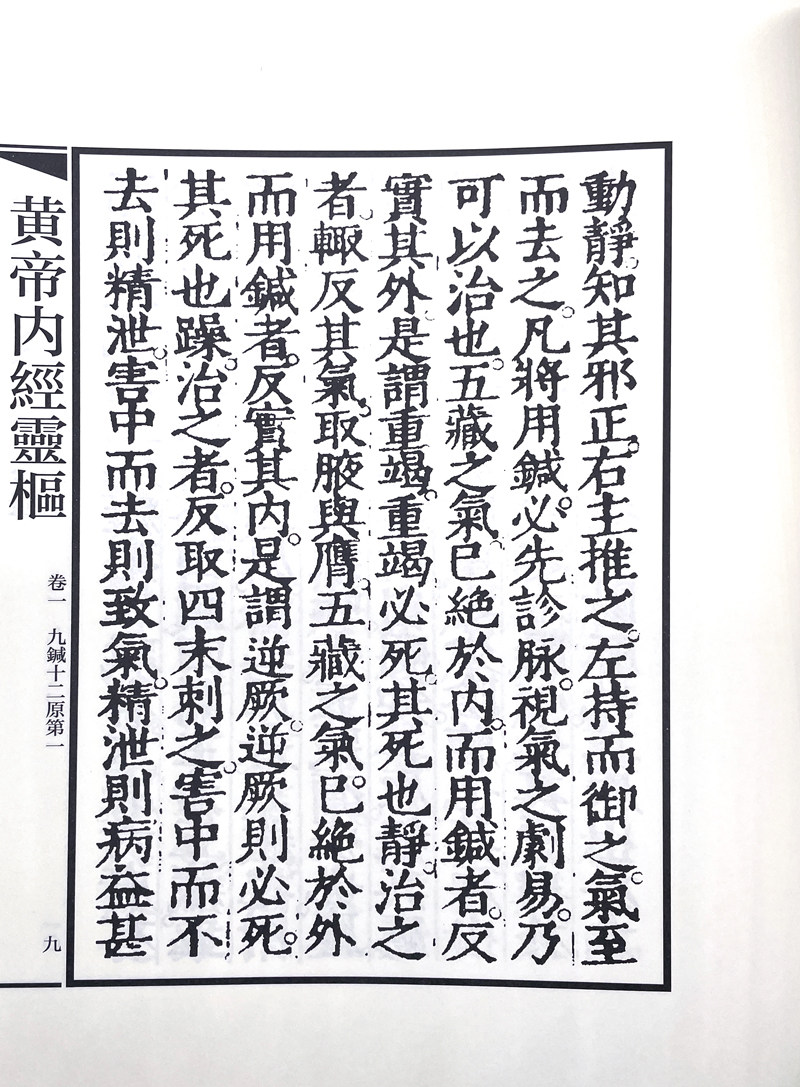 動靜。知其邪正。右主推之。左持而御之。氣至
而去之。凡將用鍼。必先診脉。視氣之劇易。乃
可以治也。五藏之氣已絶於内。而用鍼者。反
實其外。是謂重竭。重竭必死。其死也靜。治之
者。輙反其氣。取腋與膺。五藏之氣。已絶於外
而用鍼者。反實其内。是謂逆厥。逆厥則必死。
其死也躁。治之者。反取四末。刺之。害中而不
去則精泄。害中而去則致氣。精泄則病益甚
黄帝内經靈樞
卷一 九鍼十二原第一
九